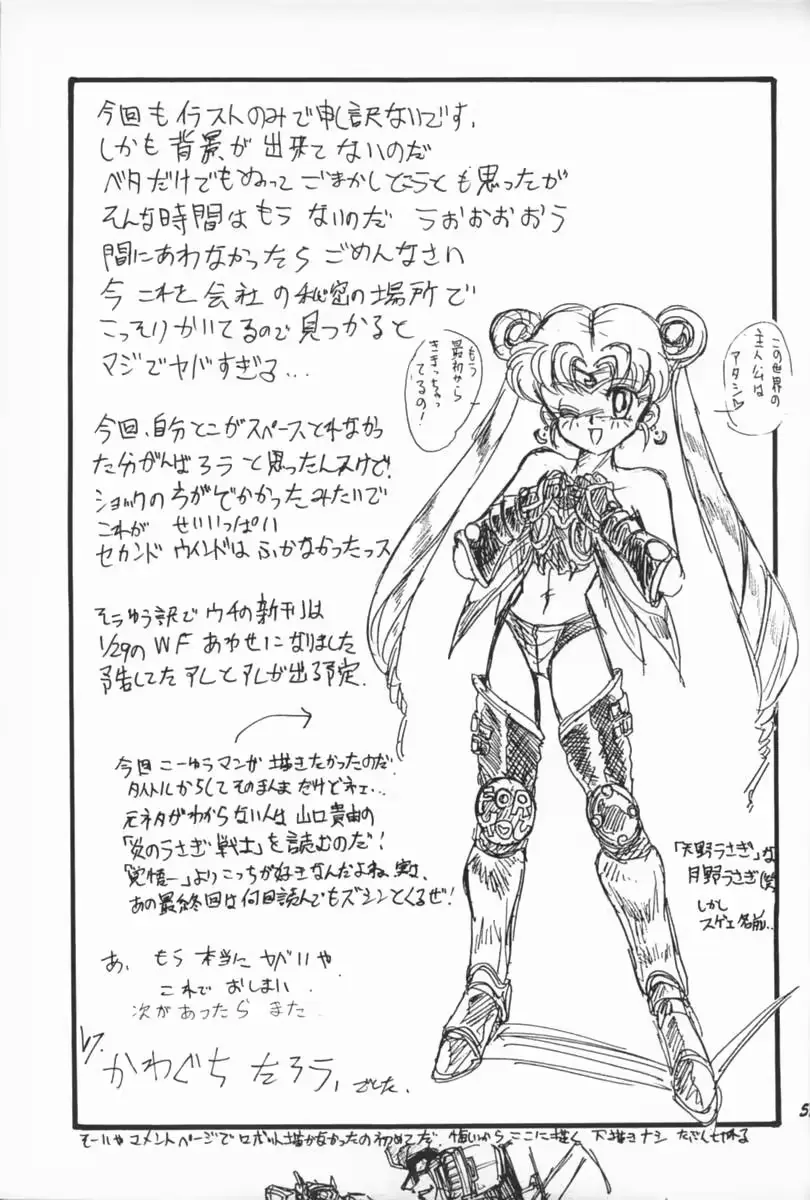 今回もイラストのみで申し訳ないです。
しかも背景が出来てないのだ
ベタだけでもぬってごまかしとこうとも思ったが
そんな時間はもうないのだ うおおおおう
間にあわなかったら ごめんなさい
今これを会社の秘密の場所で
こっそりかいてるので見つかると
マジでヤバすぎる...
今回、自分とこがスペースとれなかっ
た分がんばろうと思ったんスけど!
ショックのちがでかかったみたいで
これが せいいっぱい
セカンド ウインドは ふかなかったっス
そーゆう訳でウチの新刊は
1/29のWFあわせになりました
予告してたアレとアレが出る予定.
今回こーゆうマンガ描きたかったのだ!
タイトルからしてそのまんまだけどネェ...
元ネタがわからない人は山口貴由の
「炎のうさぎ戦士」を読むのだ!
「覚悟ー」よりこっちが好きなんだよね、実は、
あの最終回は何回読んでもズシンとくるぜ!
あ、もう本当にヤバいや.
これで おしまい.
次があったら また
かわぐち たろう, でした.
もう
最初から
きまっちゃっ
てるの!
この世界の
主人公は
アタシ♡
「天野うさぎ」な
月野うさぎ(笑)
しかし
スゲェ名前..
FOR
YOU
そーいやコメントページでロボット描かなかったの初めてだ. 悔しいからここに描く 下描きナシ
5